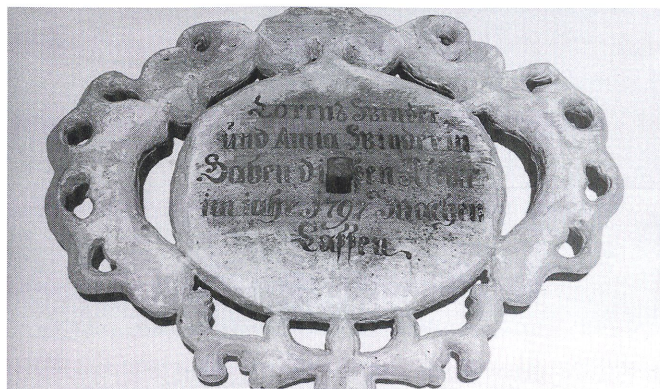 Lorenz Binder
und Anna Binderin
Haben disen Altar
im jahr 1797 Machen
Lassen